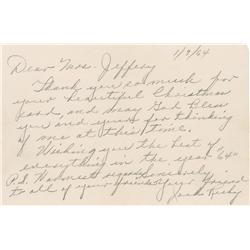 1/9/64
Dear Mrs. Jeffery
Thank you so much for
your beautiful Christmas
card, and may God Bless
you and yours for thinking
of me at this time.
Wishing you the best of
everything in the year "64"
P.S. Warmest regards Sincerely
to all of your friends Your friend
Jack Ruby